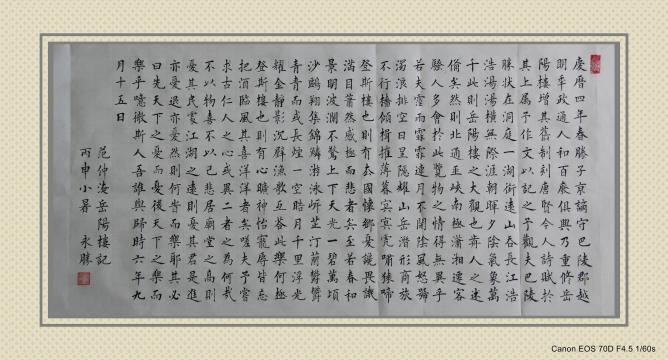 慶曆四年春滕子京謫守巴陵郡越
明年政通人和百廢俱興乃重修岳
陽樓增其舊制刻唐賢今人詩賦於
其上屬予作文以記之予觀夫巴陵
勝狀在洞庭一湖銜遠山吞長江浩
浩湯湯橫無際涯朝暉夕陰氣象萬
千此則岳陽樓之大觀也前人之述
備矣然則北通巫峽南極瀟湘遷客
騷人多會於此覽物之情得無異乎
若夫霪雨霏霏連月不開陰風怒號
濁浪排空日星隱耀山岳潛形商旅
不行檣傾楫摧薄暮冥冥虎嘯猿啼
登斯樓也則有去國懷鄉憂讒畏譏
滿目蕭然感極而悲者矣至若春和
景明波瀾不驚上下天光一碧萬頃
沙鷗翔集錦鱗游泳岸芷汀蘭鬱鬱
青青而或長煙一空皓月千里浮光
耀金靜影沉璧漁歌互答此樂何極
登斯樓也則有心曠神怡寵辱皆忘
把酒臨風其喜洋洋者矣嗟夫予嘗
求古仁人之心或異二者之為何哉
不以物喜不以己悲居廟堂之高則
憂其民處江湖之遠則憂其君是進
亦憂退亦憂然則何時而樂耶其必
曰先天下之憂而憂後天下之樂而
樂乎噫微斯人吾誰與歸時六年九
月十五日
范仲淹岳陽樓記
丙申小暑 永勝
Canon EOS 70D F4.5 1/60s